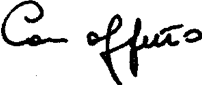 Con affetto